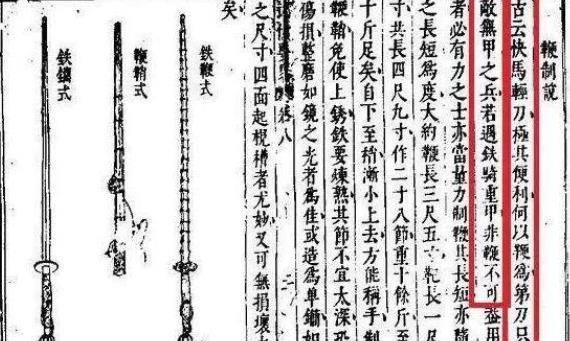 鞭制說
古云快馬輕刀極其便利何以鞭爲第刀只
敵無甲之兵若遇鉄騎重甲非鞭不可盔用
者必有力之士亦當量力制鞭其長短亦隨
之長短爲度大約鞭長三尺五寸靶長一尺
寸共長四尺九寸作二十八節重十餘斤至
十斤足矣自下至稍漸小上去方能稱手制
鞭鞘免使上銹鉄要煉熟其節不宜太深恐
傷損整磨如鏡之光者爲佳或造爲单鐧如
卷八
之尺寸四面起棂槽者尤妙又可無損壞
矣
鉄鞭式
鞭鞘式
鉄鐧式